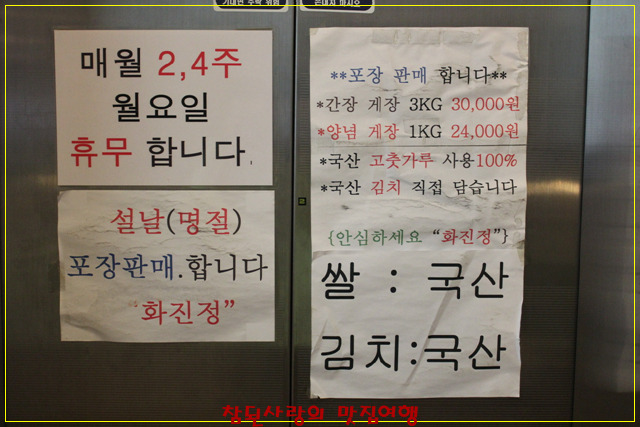 기대면 추락 위험
손대지 마시오
매월 2,4주
월요일
휴무 합니다.
설날(명절)
포장판매.합니다
"화진정"
**포장 판매 합니다**
*간장 게장 3KG 30,000원
*양념 게장 1KG 24,000원
*국산 고춧가루 사용100%
*국산 김치 직접 담습니다
{안심하세요 "화진정"}
쌀 : 국산
김치:국산
참된사랑의 맛집여행